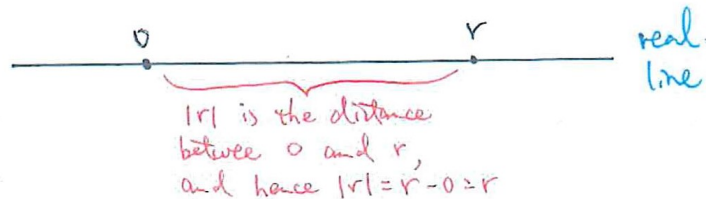 0 r real
line
|r| is the distance
betwee 0 and r,
and hence |r| = r - 0 = r